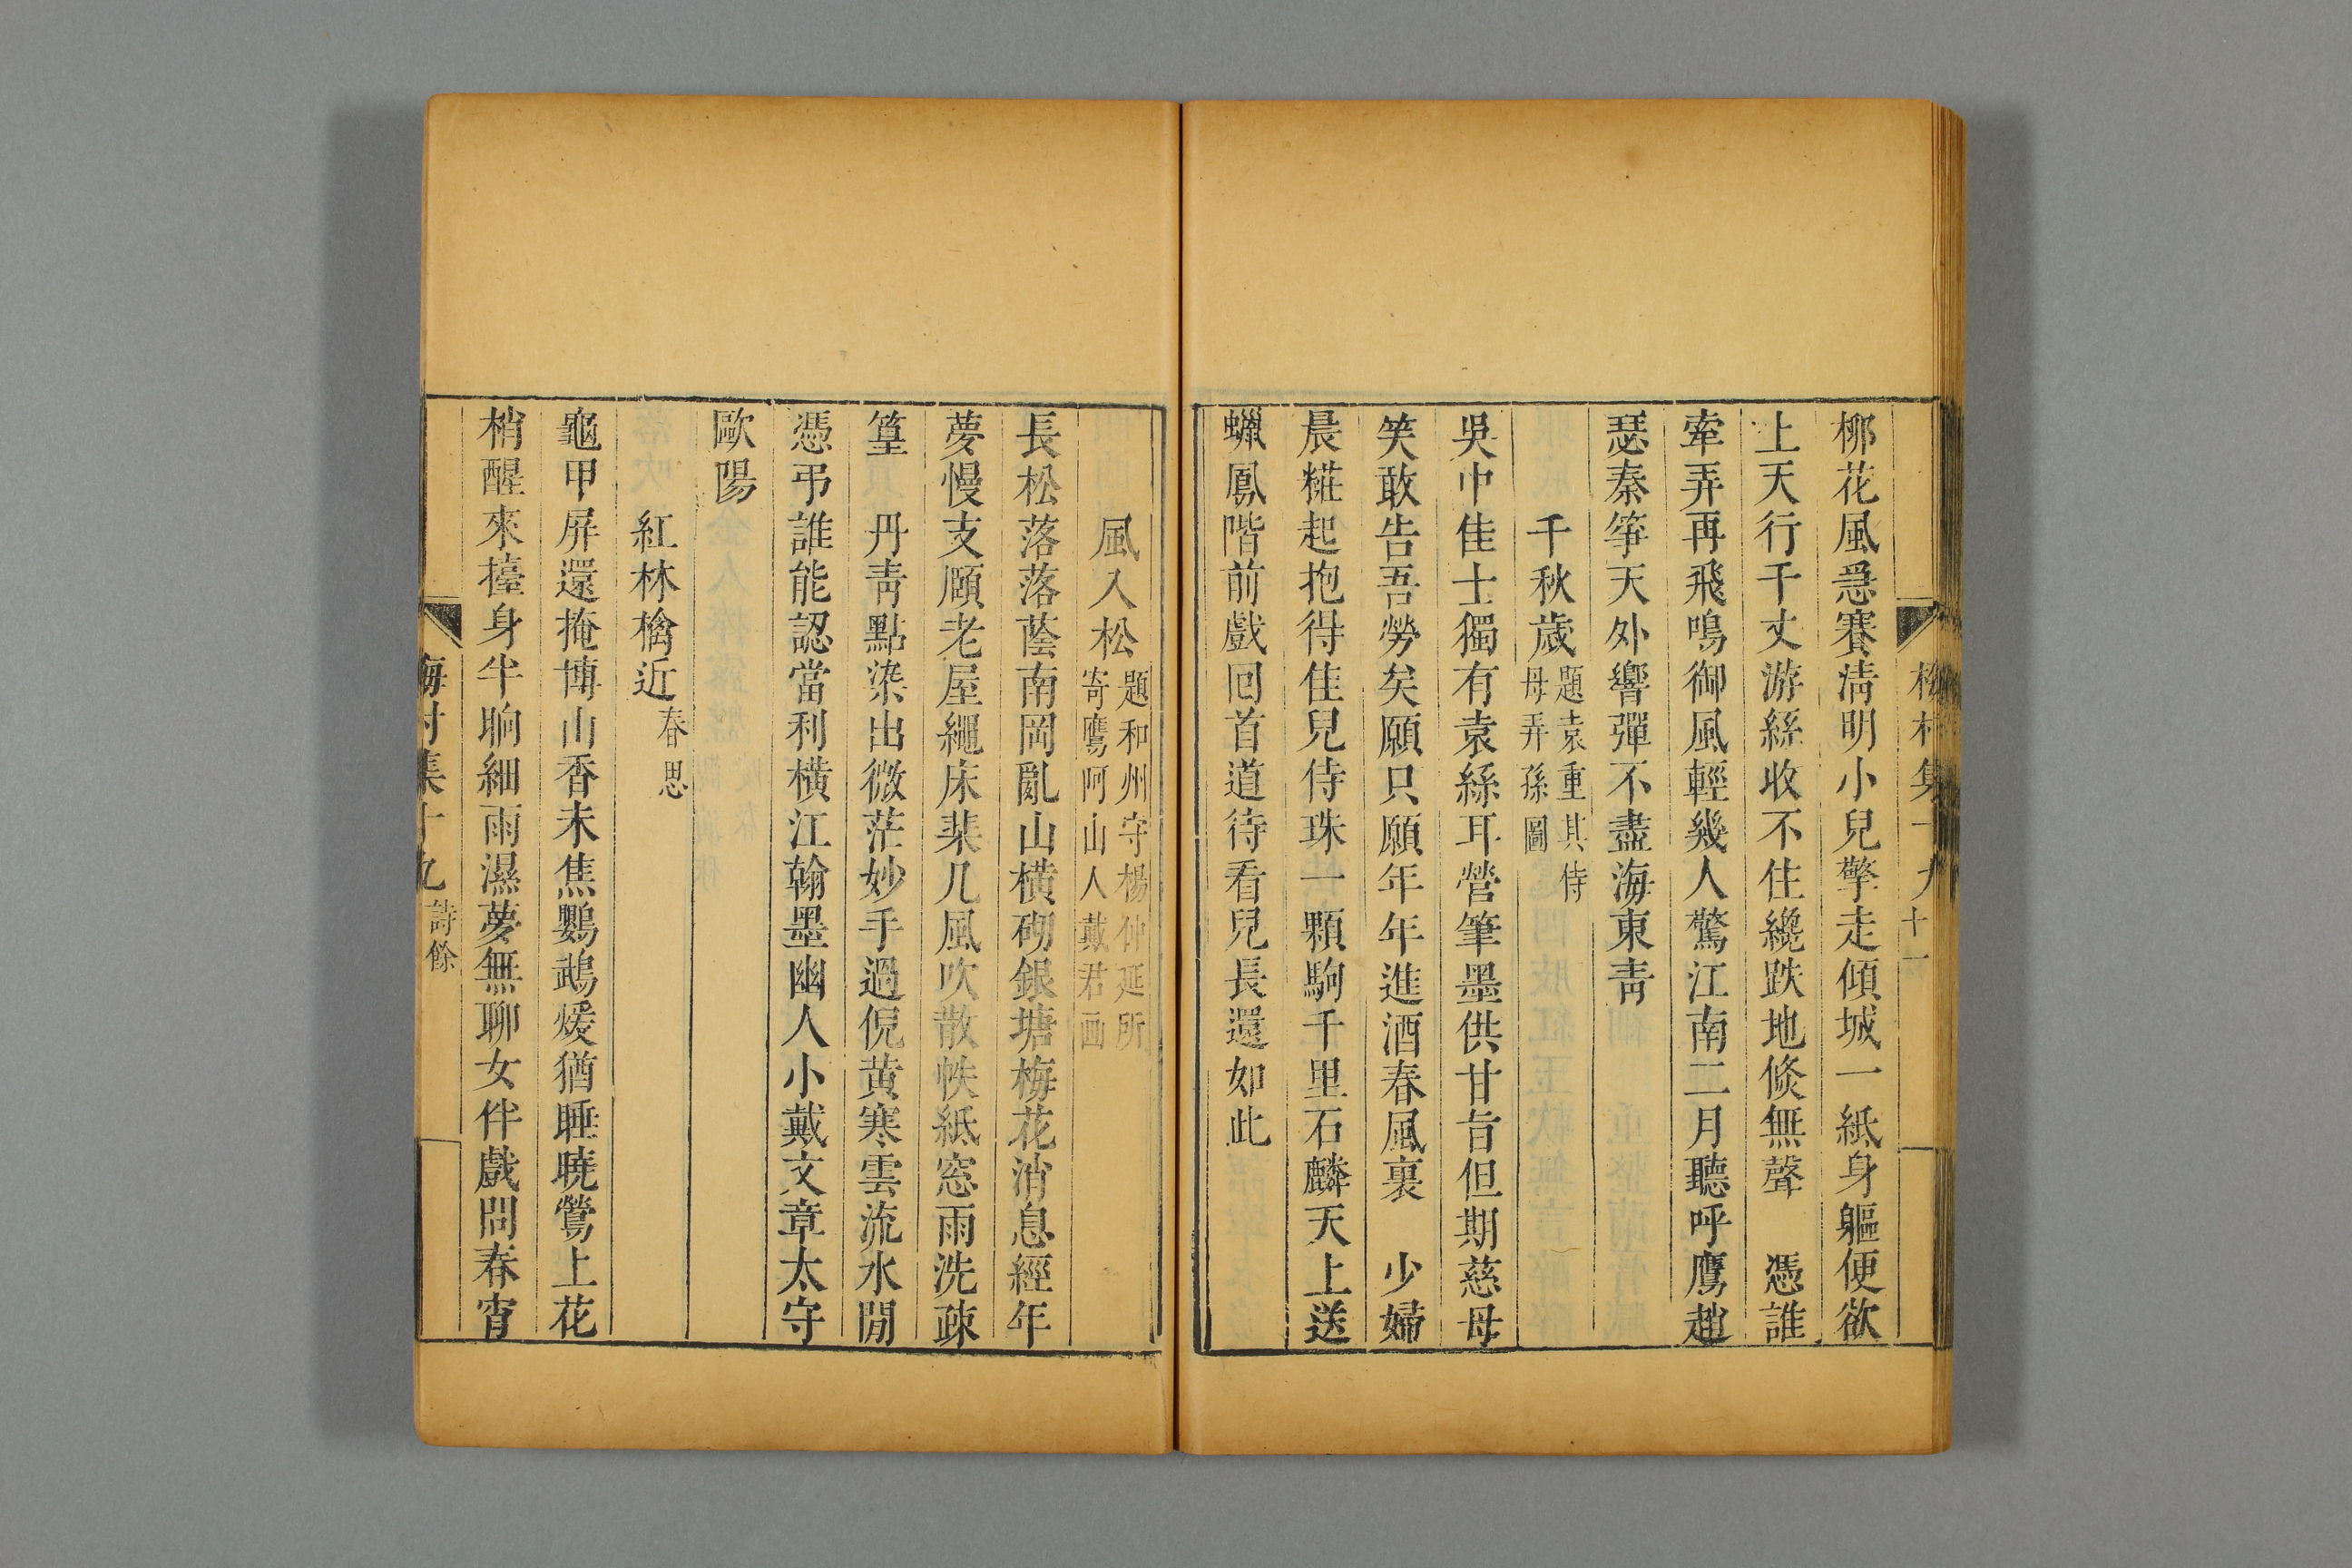 梅村集十九 十一
柳花風急賽淸明小兒擎走傾城一紙身軀便欲
上天行千丈游絲收不住纔跌地倐無聲　憑誰
牽弄再飛鳴御風輕幾人驚江南二月聽呼鷹趙
瑟秦箏天外響彈不盡海東靑
千秋歲
題袁重其侍
母弄孫圖
吳中佳士獨有袁絲耳營筆墨供甘旨但期慈母
笑敢告吾勞矣願只願年年進酒春風裏　少婦
晨糚起抱得佳兒侍珠一顆駒千里石麟天上送
蠟鳳階前戲回首道待看兒長還如此
風入松
題和州守楊仲延所
寄鷹阿山人戴君画
長松落落蔭南岡亂山橫砌銀塘梅花消息經年
夢慢支頤老屋繩床棐几風吹散帙紙窓雨洗疎
篁　丹靑點染出微茫妙手過倪黄寒雲流水閒
憑弔誰能認當利橫江翰墨幽人小戴文章太守
歐陽
紅林檎近
春思
龜甲屛還掩博山香未焦鸚鵡煖猶睡曉鶯上花
梢醒來擡身半晌細雨濕夢無聊女伴戲問春宵
梅村集十九 詩餘